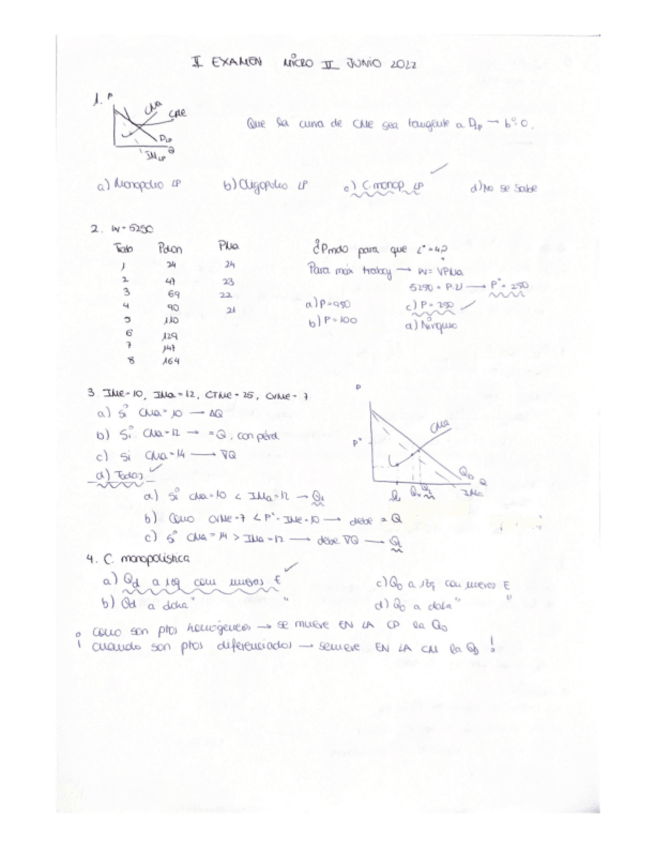 II EXAMEN MICRO II JUNIO 2022
1. P CMa CMe DLP IMLP Q
Que la curva de CMe sea tangente a DLP → bº=0.
a) Monopolio LP b) Oligopolio LP c) C. monop. LP d) No se sabe
2. W=5250
Trabaj Pdcion PMa
1 24 24
2 47 23
3 69 22
4 90 21
5 110
6 129
7 147
8 164
¿Pmdo para que L*=4?
Para máx trabaj → W=VPMa
5250 = P·21 → P*=250
a) P=950 c) P=250
b) P=100 d) Ninguno
3. IMe=10, IMa=12, CTMe=25, CVMe=7
a) Si CMa=10 → ΔQ
b) Si CMa=12 → =Q, con pérd
c) Si CMa=14 → ∇Q
d) Todas
P P* CMa QD Q IMa
a) Si CMa=10 < IMa=12 → Q1
b) Como CVMe=7 < P*=IMe=10 → debe = Q
c) Si CMa=14 > IMa=12 → debe ∇Q
4. C. monopolística
a) Qd a izq con nuevos E c) Qo a izq con nuevos E
b) Qd a dcha " d) Qo a dcha " "
Como son ptos homogéneos → se mueve EN LA CP la Qo
! Cuando son ptos diferenciados → se mueve EN LA CM la QD !